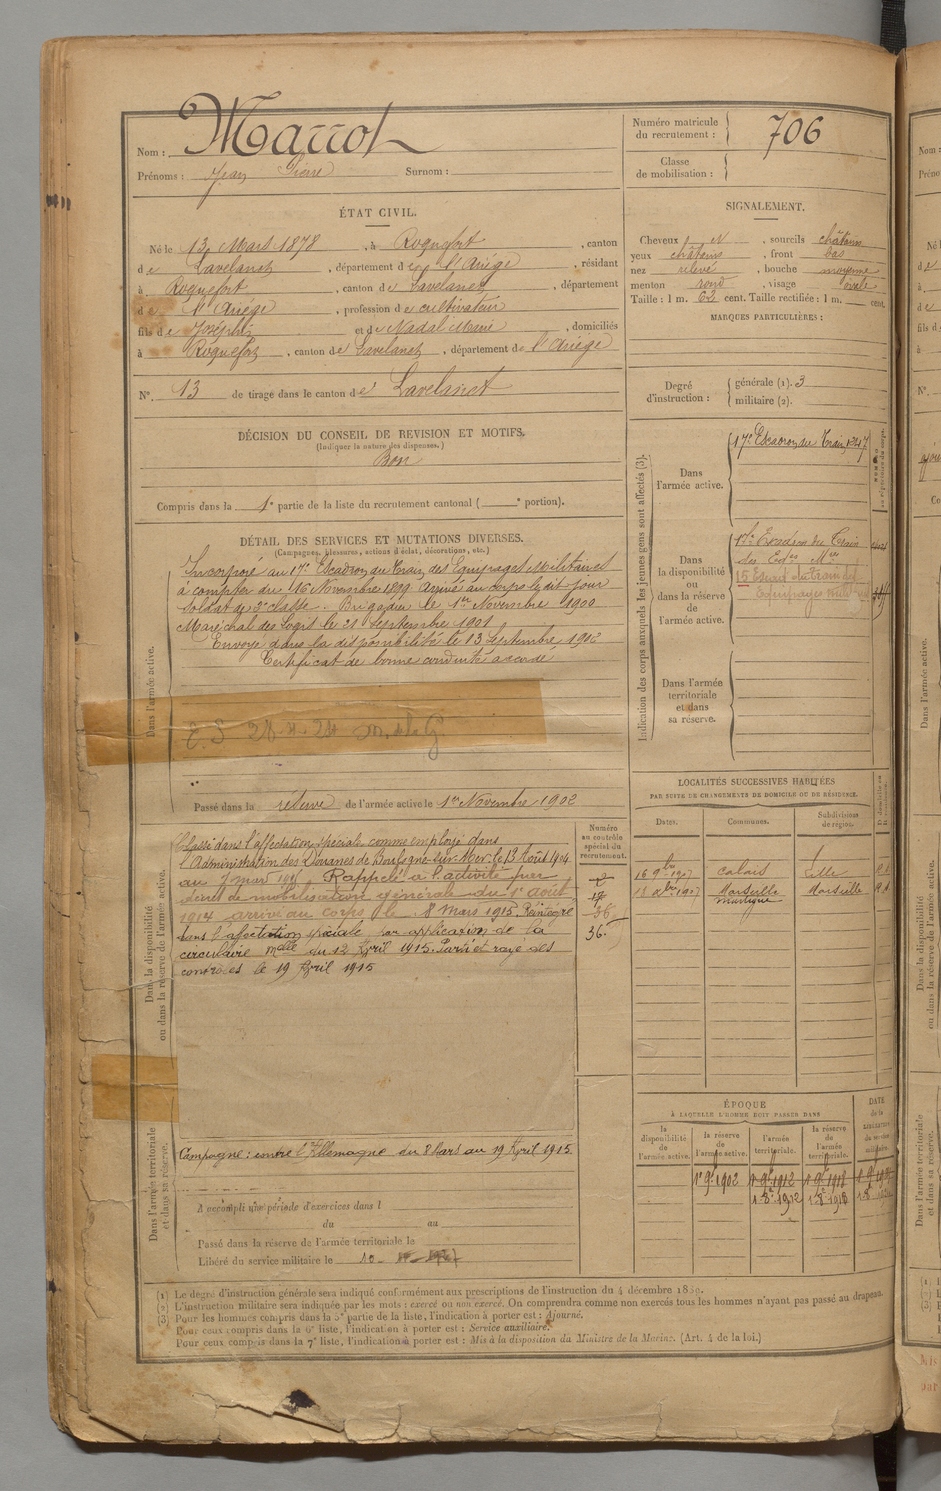 Nom : Marrot
Prénoms : Jean Pierre Surnom :
Numéro matricule du recrutement : 706
Classe de mobilisation :
ÉTAT CIVIL.
Né le 13 Mars 1878, à Roquefort, canton
de Lavelanet, département de l'Ariège, résidant
à Roquefort, canton de Lavelanet, département
de l'Ariège, profession de cultivateur
fils de Joseph et de Nadal Marie, domiciliés
à Roquefort, canton de Lavelanet, département de l'Ariège
N° 13 de tirage dans le canton de Lavelanet
SIGNALEMENT.
Cheveux N, sourcils châtains
yeux châtains, front bas
nez relevé, bouche moyenne
menton rond, visage ovale
Taille : 1 m. 62 cent. Taille rectifiée : 1 m. cent.
MARQUES PARTICULIÈRES :
Degré d'instruction : générale (1). 3
militaire (2).
DÉCISION DU CONSEIL DE REVISION ET MOTIFS.
(Indiquer la nature des dispenses.)
Bon
Compris dans la 1e partie de la liste du recrutement cantonal ( e portion).
DÉTAIL DES SERVICES ET MUTATIONS DIVERSES.
(Campagnes, blessures, actions d'éclat, décorations, etc.)
Dans l'armée active.
Incorporé au 17e Escadron du Train des Equipages Militaires
à compter du 16 Novembre 1899. Arrivé au corps le dit jour
Soldat de 2e classe. Brigadier le 1er Novembre 1900
Maréchal des Logis le 21 Septembre 1901
Envoyé dans la disponibilité le 13 Septembre 1902
Certificat de bonne conduite accordé
Passé dans la réserve de l'armée active le 1er Novembre 1902
Dans la disponibilité ou dans la réserve de l'armée active.
Classé dans l'affectation spéciale comme employé dans
l'Administration des Douanes de Boulogne-sur-Mer le 13 Août 1904
Rappelé à l'activité par
décret de mobilisation générale du 1er août
1914 arrivé au corps le 8 Mars 1915. Réintégré
dans l'affectation spéciale par application de la
circulaire mlle du 12 Avril 1915. Parti et rayé des
contrôles le 19 Avril 1915
Numéro au contrôle spécial du recrutement.
36.
Dans l'armée territoriale et dans sa réserve.
Campagne : contre l'Allemagne du 8 Mars au 19 Avril 1915
A accompli une période d'exercices dans l
du au
Passé dans la réserve de l'armée territoriale le
Libéré du service militaire le 10
Indication des corps auxquels les jeunes gens sont affectés (3).
Dans l'armée active.
17e Escadron du Train
Dans la disponibilité ou dans la réserve de l'armée active.
17e Escadron du Train
des Eqes Mres
15 Escad du Train des
Equipages
Dans l'armée territoriale et dans sa réserve.
LOCALITÉS SUCCESSIVES HABITÉES
PAR SUITE DE CHANGEMENTS DE DOMICILE OU DE RÉSIDENCE.
Dates. Communes. Subdivisions de région.
16 9bre 1907 Calais
Marseille Marseille
Martigue
ÉPOQUE
À LAQUELLE L'HOMME DOIT PASSER DANS
la disponibilité de l'armée active.
la réserve de l'armée active.
l'armée territoriale.
la réserve de l'armée territoriale.
DATE de la LIBÉRATION du service militaire.
1er 9bre 1902 1er 9bre 1912 1er 9bre 1918
(1) Le degré d'instruction générale sera indiqué conformément aux prescriptions de l'instruction du 4 décembre 1889.
(2) L'instruction militaire sera indiquée par les mots : exercé ou non exercé. On comprendra comme non exercés tous les hommes n'ayant pas passé au drapeau.
(3) Pour les hommes compris dans la 5e partie de la liste, l'indication à porter est : Ajourné.
Pour ceux compris dans la 6e liste, l'indication à porter est : Service auxiliaire.
Pour ceux compris dans la 7e liste, l'indication à porter est : Mis à la disposition du Ministre de la Marine. (Art. 4 de la loi.)